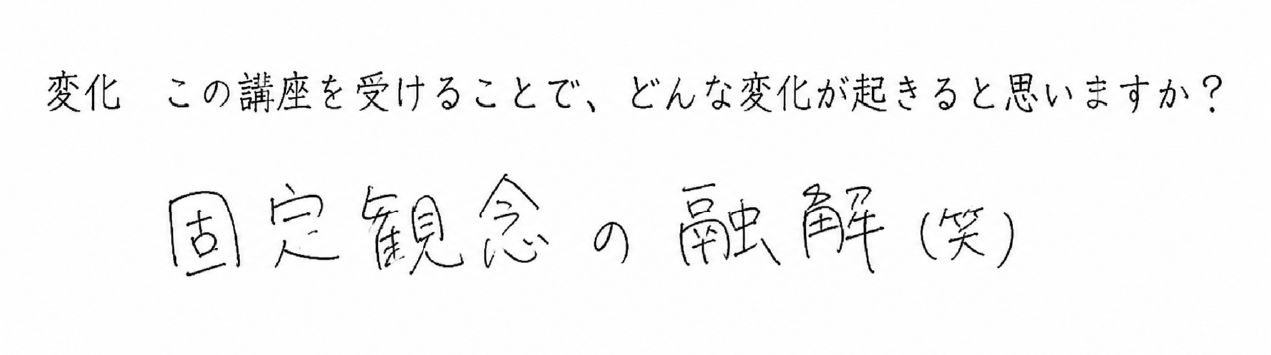 変化　この講座を受けることで、どんな変化が起きると思いますか？
固定観念の融解（笑）